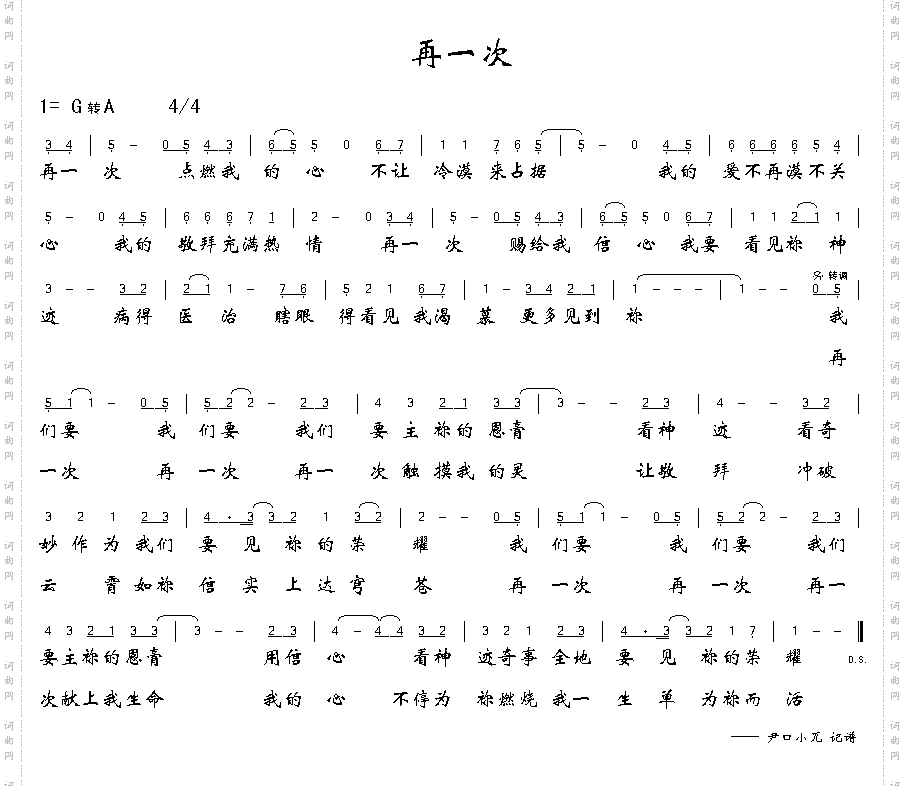 再一次
1= G 转 A 4/4
3 4 | 5 - 0 5 4 3 | 6 5 5 0 6 7 | 1 1 7 6 5 | 5 - 0 4 5 | 6 6 6 6 5 4 |
再一 次 点燃我 的 心 不让 冷漠 来占据 我的 爱不再漠不关
5 - 0 4 5 | 6 6 6 7 1 | 2 - 0 3 4 | 5 - 0 5 4 3 | 6 5 5 0 6 7 | 1 1 2 1 1 |
心 我的 敬拜充满热 情 再一 次 赐给我 信 心 我要 看见祢 神
转调
3 - - 3 2 | 2 1 1 - 7 6 | 5 2 1 6 7 | 1 - 3 4 2 1 | 1 - - - | 1 - - 0 5 |
迹 病得 医 治 瞎眼 得看见 我渴 慕 更多见到 祢 我
再
5 1 1 - 0 5 | 5 2 2 - 2 3 | 4 3 2 1 3 3 | 3 - - 2 3 | 4 - - 3 2 |
们要 我 们要 我们 要 主 祢的 恩膏 看神 迹 看奇
一次 再 一次 再一 次 触 摸我 的灵 让敬 拜 冲破
3 2 1 2 3 | 4 · 3 3 2 1 3 2 | 2 - - 0 5 | 5 1 1 - - 0 5 | 5 2 2 - 2 3 |
妙 作 为 我们 要 见 祢 的荣 耀 我 们要 我 们要 我们
云 霄 如祢 信 实 上 达穹 苍 再 一次 再 一次 再一
4 3 2 1 3 3 | 3 - - 2 3 | 4 - 4 4 3 2 | 3 2 1 2 3 | 4 · 3 3 2 1 7 | 1 - -
要主祢的恩膏 用信 心 看神 迹奇事 全地 要 见 祢的荣 耀 D.S.
次献上我生命 我的 心 不停为 祢燃烧 我一 生 单 为祢而 活
—— 尹口小兀 记谱